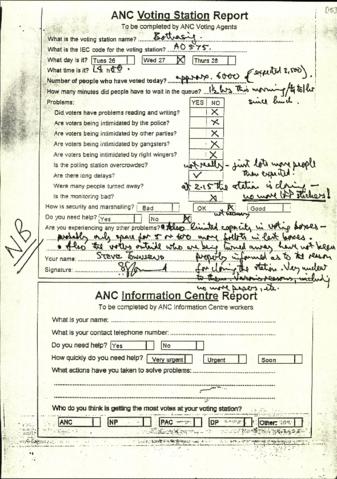 ANC Voting Station Report
To be completed by ANC Voting Agents
What is the voting station name? Bothasig
What is the IEC code for the voting station? AO 575.
What day is it? Tues 26 Wed 27 X Thurs 28
What time is it? 14
Number of people who have voted today? approx. 6000 (expected 3,500).
How many minutes did people have to wait in the queue? 1½ hrs this morning/
since lunch.
Problems: YES NO
Did voters have problems reading and writing? X
Are voters being intimidated by the police? X
Are voters being intimidated by other parties? X
Are voters being intimidated by gangsters? X
Are voters being intimidated by right wingers? X
Is the polling station overcrowded? not really - just lots more people
than expected.
Are there long delays? ✓
Were many people turned away? at 2.15 the station is closing -
no more stickers!
Is the monitoring bad? X
How is security and marshalling? Bad OK X Good
Do you need help? Yes No X
Are you experiencing any other problems? Also limited capacity in voting boxes -
probably only space for 5 or 600 more ballots in last boxes.
Also the voters outside who are being turned away have not been
Your name STEVE properly informed as to the reason
Signature: for closing the station. Very unclear
to them. Various reasons, including
no more papers, etc.
NB
ANC Information Centre Report
To be completed by ANC Information Centre workers
What is your name?
What is your contact telephone number:
Do you need help? Yes No
How quickly do you need help? Very urgent Urgent Soon
What actions have you taken to solve problems:
Who do you think is getting the most votes at your voting station?
ANC NP PAC DP Other: